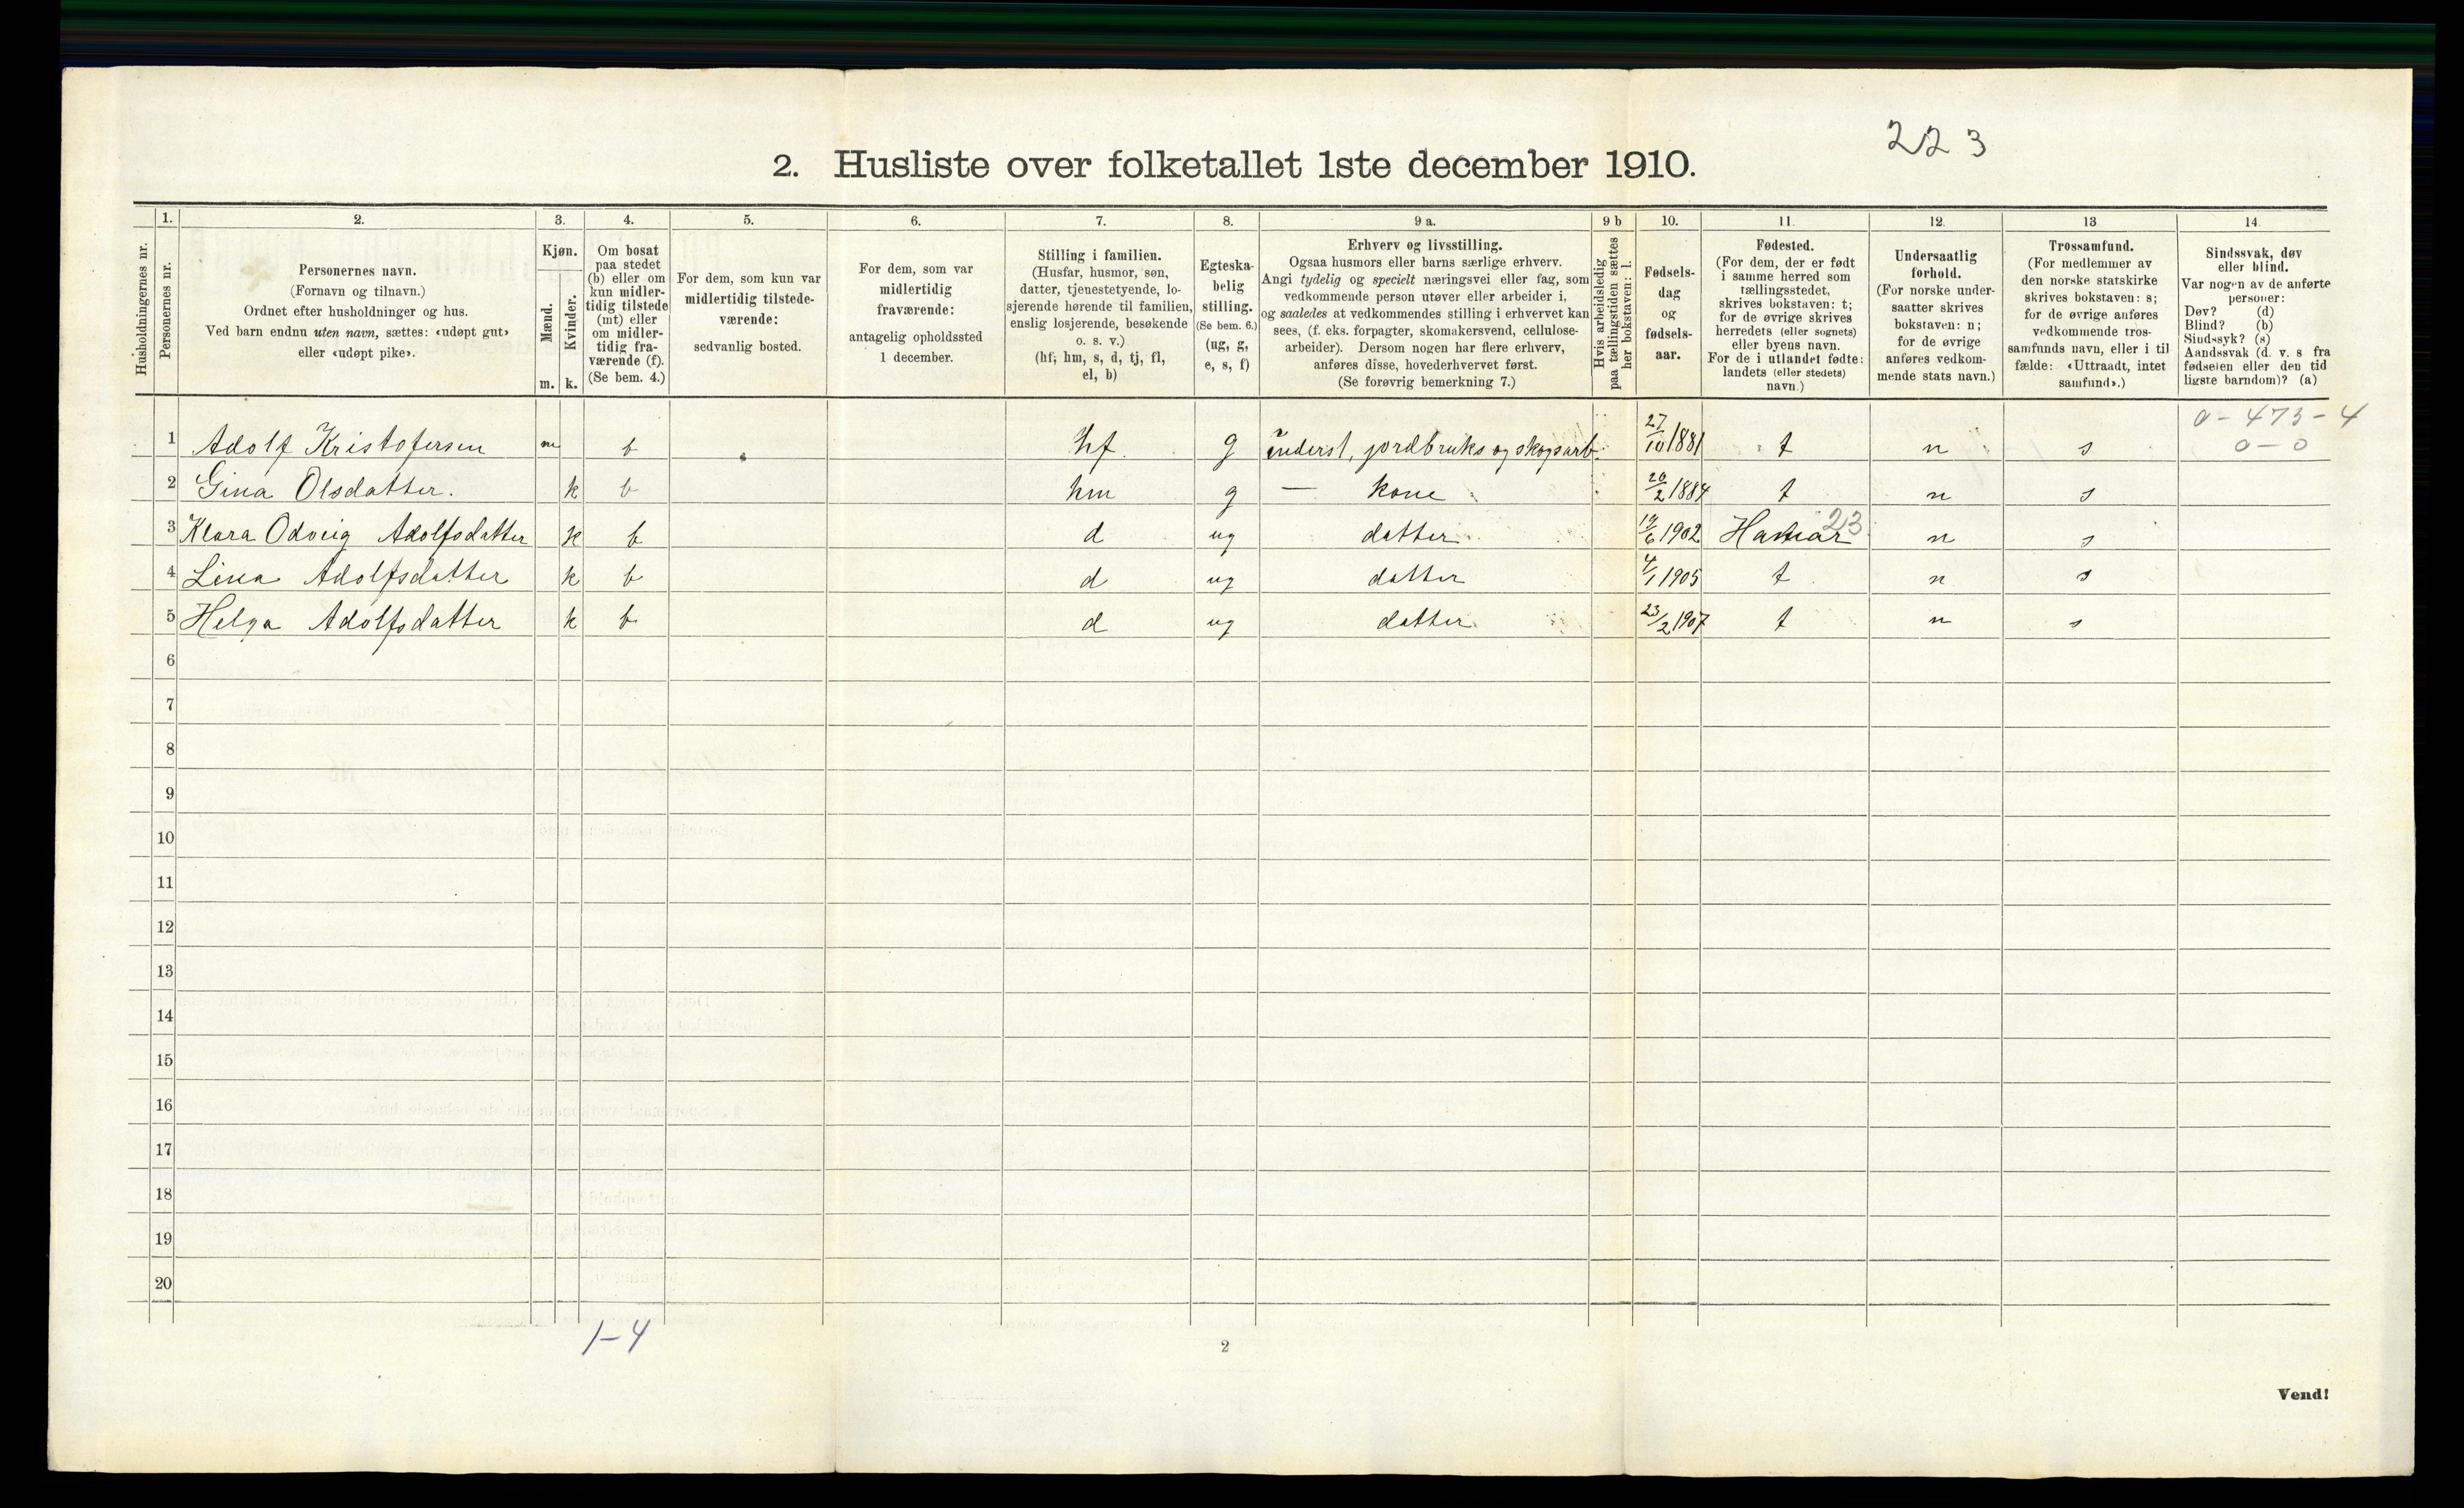 223
2. Husliste over folketallet 1ste december 1910.
Husholdningernes nr.
1.
Personernes nr.
2.
Personernes navn.
(Fornavn og tilnavn.)
Ordnet efter husholdninger og hus.
Ved barn endnu uten navn, sættes: «udøpt gut»
eller «udøpt pike».
3.
Kjøn.
Mænd.
m.
Kvinder.
k.
4.
Om bosat
paa stedet
(b) eller om
kun midler-
tidig tilstede
(mt) eller
om midler-
tidig fra-
værende (f).
(Se bem. 4.)
5.
For dem, som kun var
midlertidig tilstede-
værende:
sedvanlig bosted.
6.
For dem, som var
midlertidig
fraværende:
antagelig opholdssted
1 december.
7.
Stilling i familien.
(Husfar, husmor, søn,
datter, tjenestetyende, lo-
sjerende hørende til familien,
enslig losjerende, besøkende
o. s. v.)
(hf, hm, s, d, tj, fl,
el, b)
8.
Egteska-
belig
stilling.
(Se bem. 6.)
(ug, g,
e, s, f)
9 a.
Erhverv og livsstilling.
Ogsaa husmors eller barns særlige erhverv.
Angi tydelig og specielt næringsvei eller fag, som
vedkommende person utøver eller arbeider i,
og saaledes at vedkommendes stilling i erhvervet kan
sees, (f. eks. forpagter, skomakersvend, cellulose-
arbeider). Dersom nogen har flere erhverv,
anføres disse, hovederhvervet først.
(Se forøvrig bemerkning 7.)
9 b
Hvis arbeidsledig
paa tællingstiden sættes
her bokstaven: l.
10.
Fødsels-
dag
og
fødsels-
aar.
11.
Fødested.
(For dem, der er født
i samme herred som
tællingsstedet,
skrives bokstaven: t;
for de øvrige skrives
herredets (eller sognets)
eller byens navn.
For de i utlandet fødte:
landets (eller stedets)
navn.)
12.
Undersaatlig
forhold.
(For norske under-
saatter skrives
bokstaven: n;
for de øvrige
anføres vedkom-
mende stats navn.)
13
Trossamfund.
(For medlemmer av
den norske statskirke
skrives bokstaven: s;
for de øvrige anføres
vedkommende tros-
samfunds navn, eller i til
fælde: «Uttraadt, intet
samfund».)
14.
Sindssvak, døv
eller blind.
Var nogen av de anførte
personer:
Døv? (d)
Blind? (b)
Sindssyk? (s)
Aandssvak (d. v. s fra
fødselen eller den tid
ligste barndom)? (a)
0-473-4
0-0
1 Adolf Kristofersen m b hf. g jordbruks og skogsarb. 27/10 1881 t n s
2 Gina Olsdatter. k b hm g — kone 20/2 1884 t n s
3 Klara Odveig Adolfsdatter k b d ug datter 19/6 1902 Hamar 23 n s
4 Lina Adolfsdatter k b d ug datter 4/1 1905 t n s
5 Helga Adolfsdatter k b d ug datter 23/2 1907 t n s
6
7
8
9
10
11
12
13
14
15
16
17
18
19
20
1-4
2
Vend!